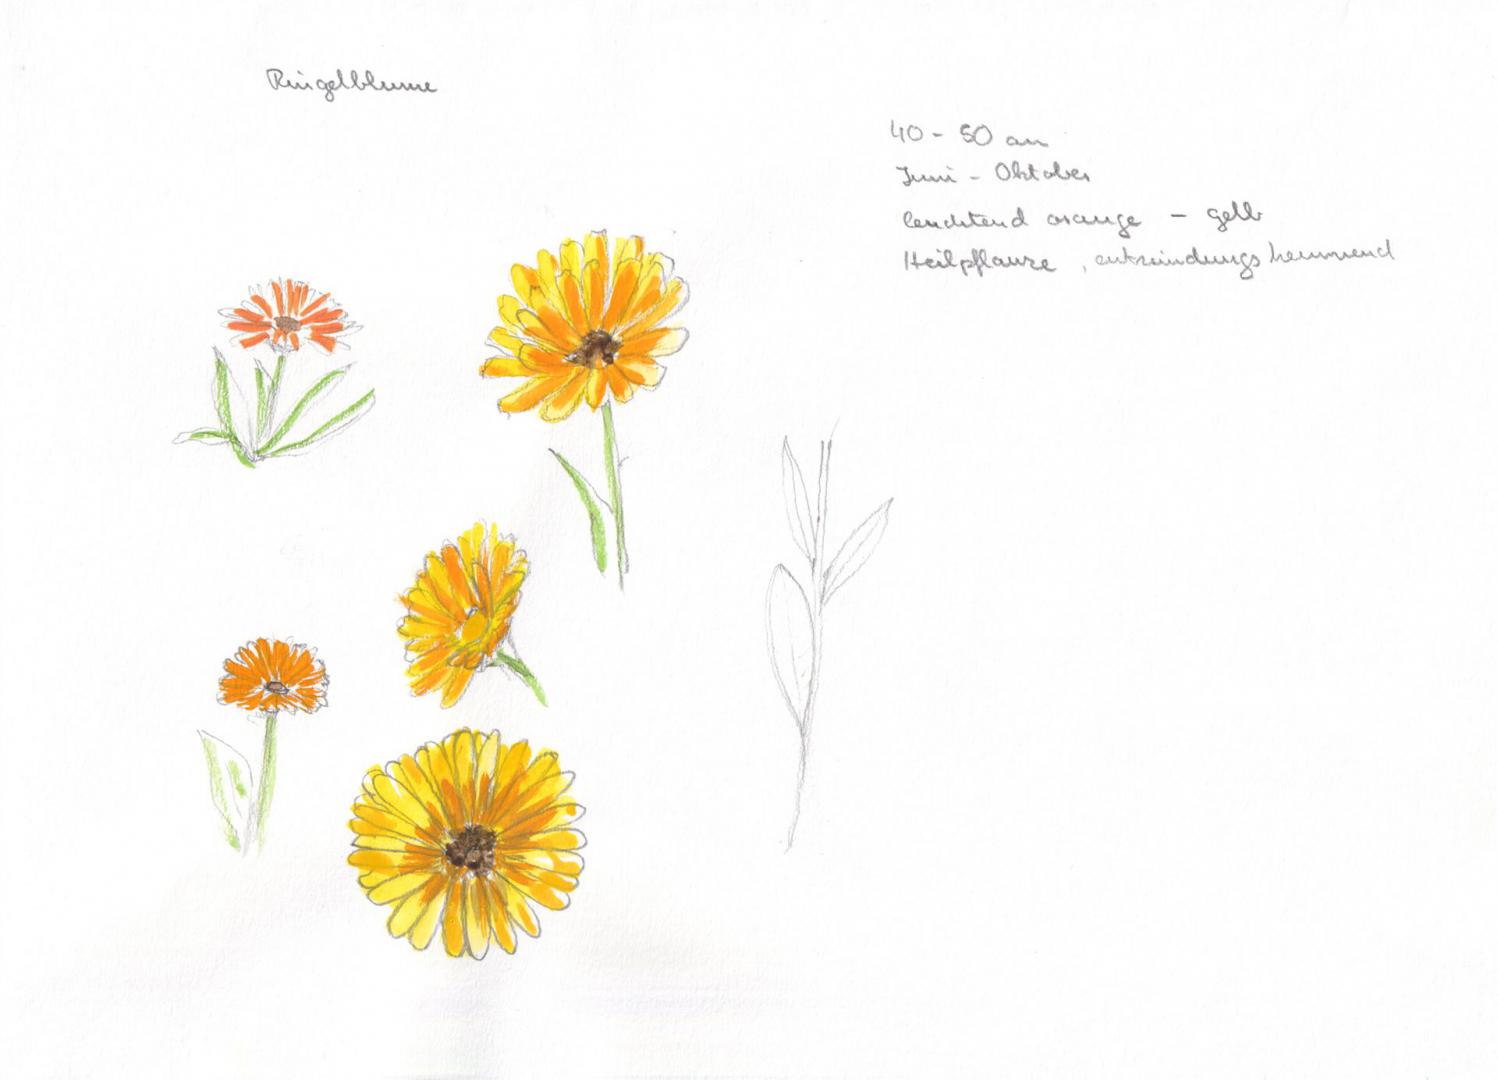 Ringelblume
40 - 50 cm
Juni - Oktober
leuchtend orange - gelb
Heilpflanze, entzündungshemmend